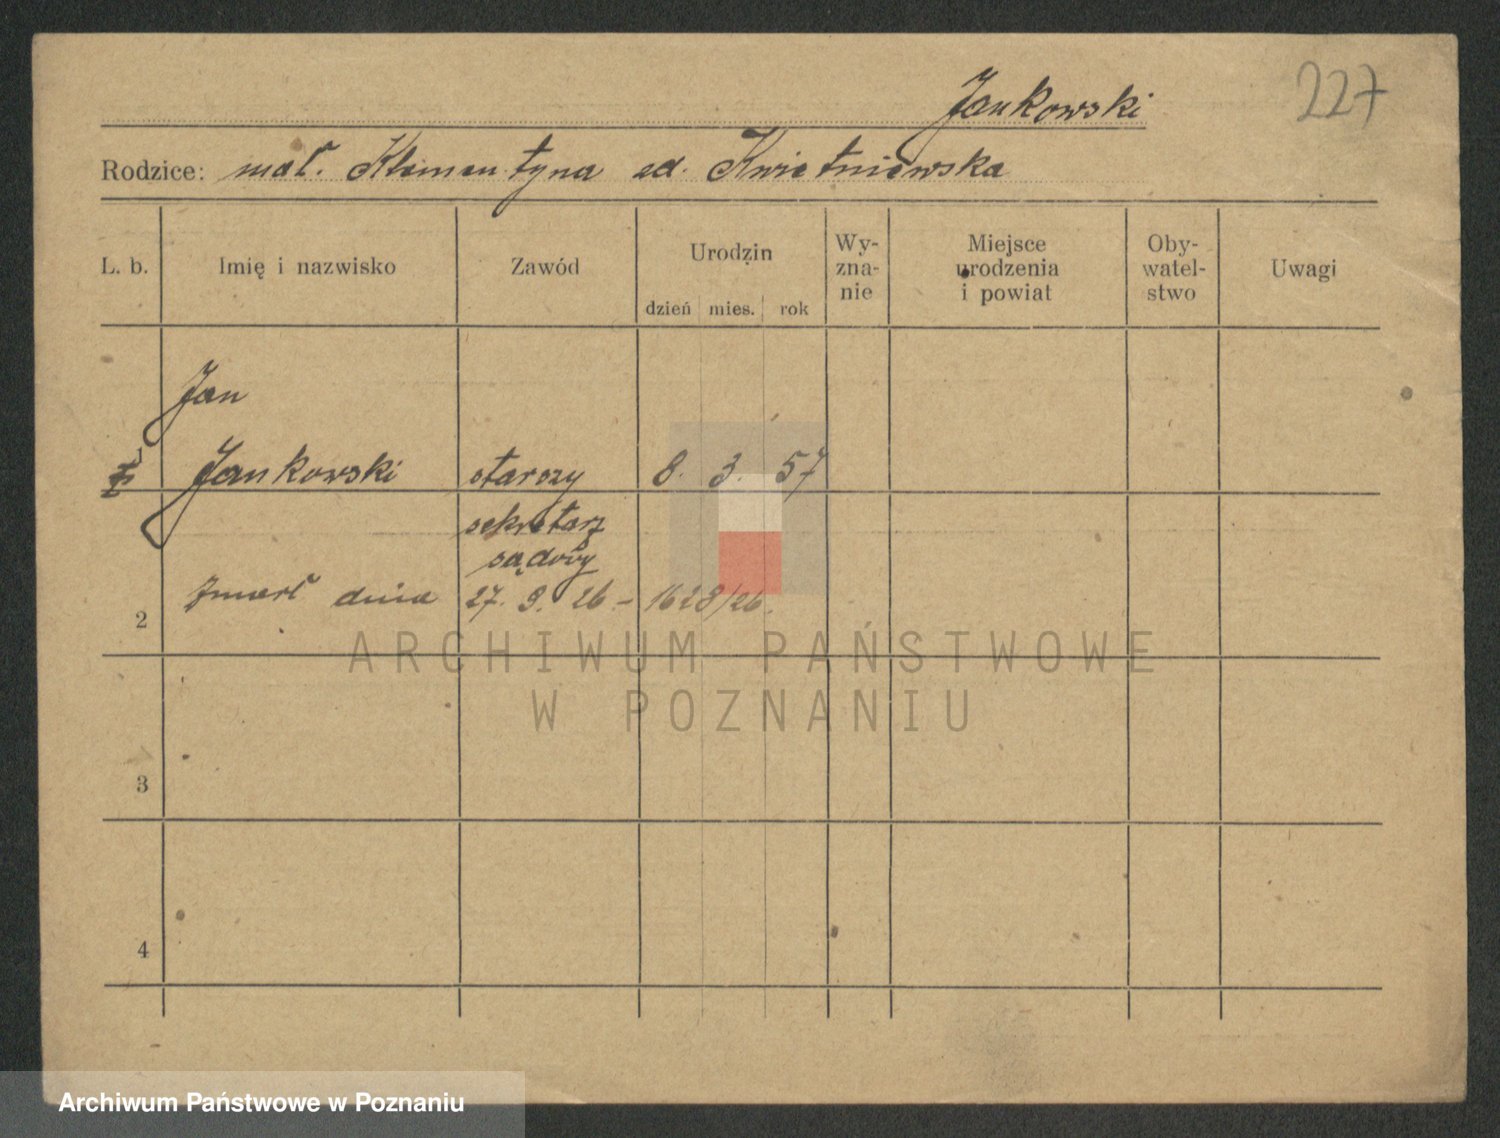 227
Jankowski
Rodzice: mał. Klementyna zd. Kwietniewska
L. b. Imię i nazwisko Zawód Urodzin dzień mies. rok Wy-zna-nie Miejsce urodzenia i powiat Oby-watel-stwo Uwagi
Jan
Jankowski starszy 8. 3. 57
sekretarz
sądowy
2 Zmarł dnia 27. 9. 26 – 1628/26.
ARCHIWUM PAŃSTWOWE
W POZNANIU
3
4
Archiwum Państwowe w Poznaniu